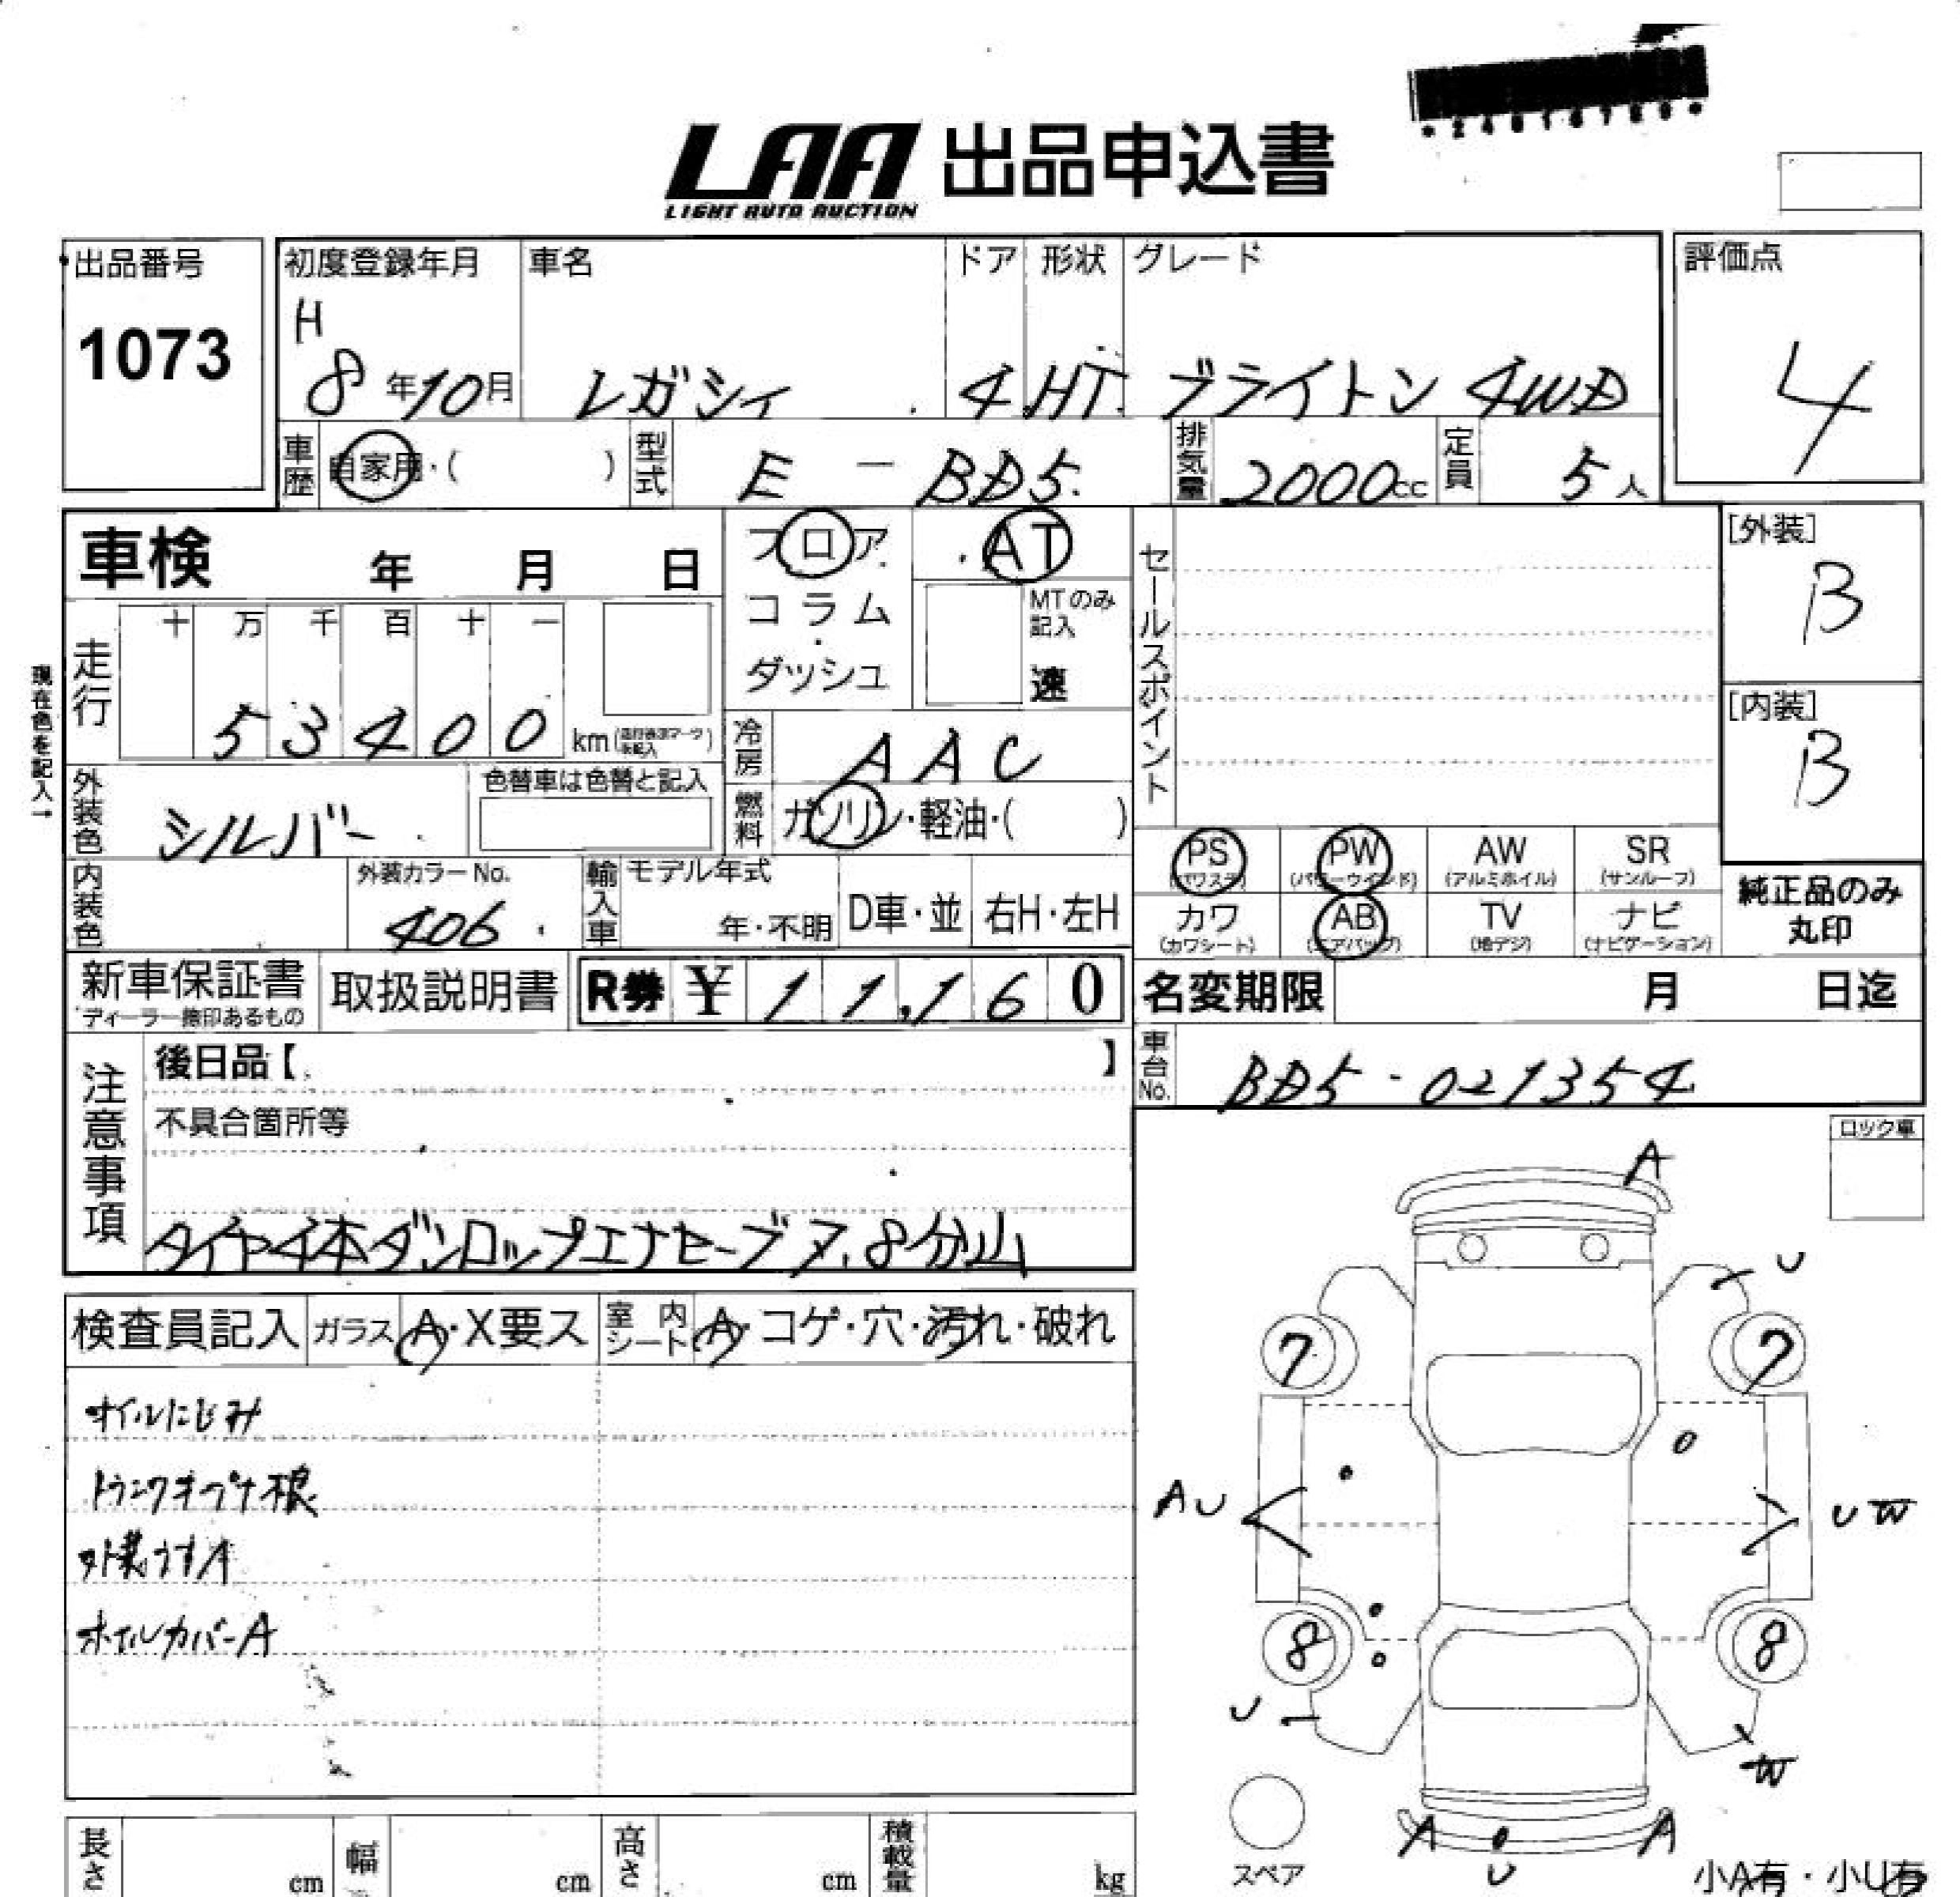 LAA 出品申込書
LIGHT AUTO AUCTION
出品番号
1073
初度登録年月
H
8年10月
車名
レガシィ
ドア
4
形状
HT
グレード
ブライトン 4WD
評価点
4
車歴
自家用・( )
型式
E - BD5
排気量
2000cc
定員
5人
車検 年 月 日
フロア
コラム
・
ダッシュ
AT
MTのみ
記入
速
セールスポイント
[外装]
B
[内装]
B
現在色を記入→
走行
十 万 千 百 十 一
5 3 4 0 0 km
冷房
AAC
外装色
シルバー
色替車は色替と記入
燃料
ガソリン・軽油・( )
内装色
外装カラーNo.
406
輸入車
モデル年式
年・不明
D車・並
右H・左H
PS
(パワステ)
PW
(パワーウインド)
AW
(アルミホイル)
SR
(サンルーフ)
カワ
(カワシート)
AB
(エアバッグ)
TV
(地デジ)
ナビ
(ナビゲーション)
純正品のみ
丸印
新車保証書
ディーラー捺印あるもの
取扱説明書
R券 ¥ 11,160
名変期限 月 日迄
注意事項
後日品【 】
不具合箇所等
タイヤ4本ダンロップエナセーブ 7.8分山
車台No.
BD5-021354
ロック車
検査員記入
ガラス
A・X要ス
室内シート
A・コゲ・穴・汚れ・破れ
オイルにじみ
トランクオープナ根
外装うすA
ホイルカバーA
A
U
7
7
AU
UW
8
8
U
W
A
U
A
スペア
小A有・小U有
長さ
cm
幅
cm
高さ
cm
積載量
kg